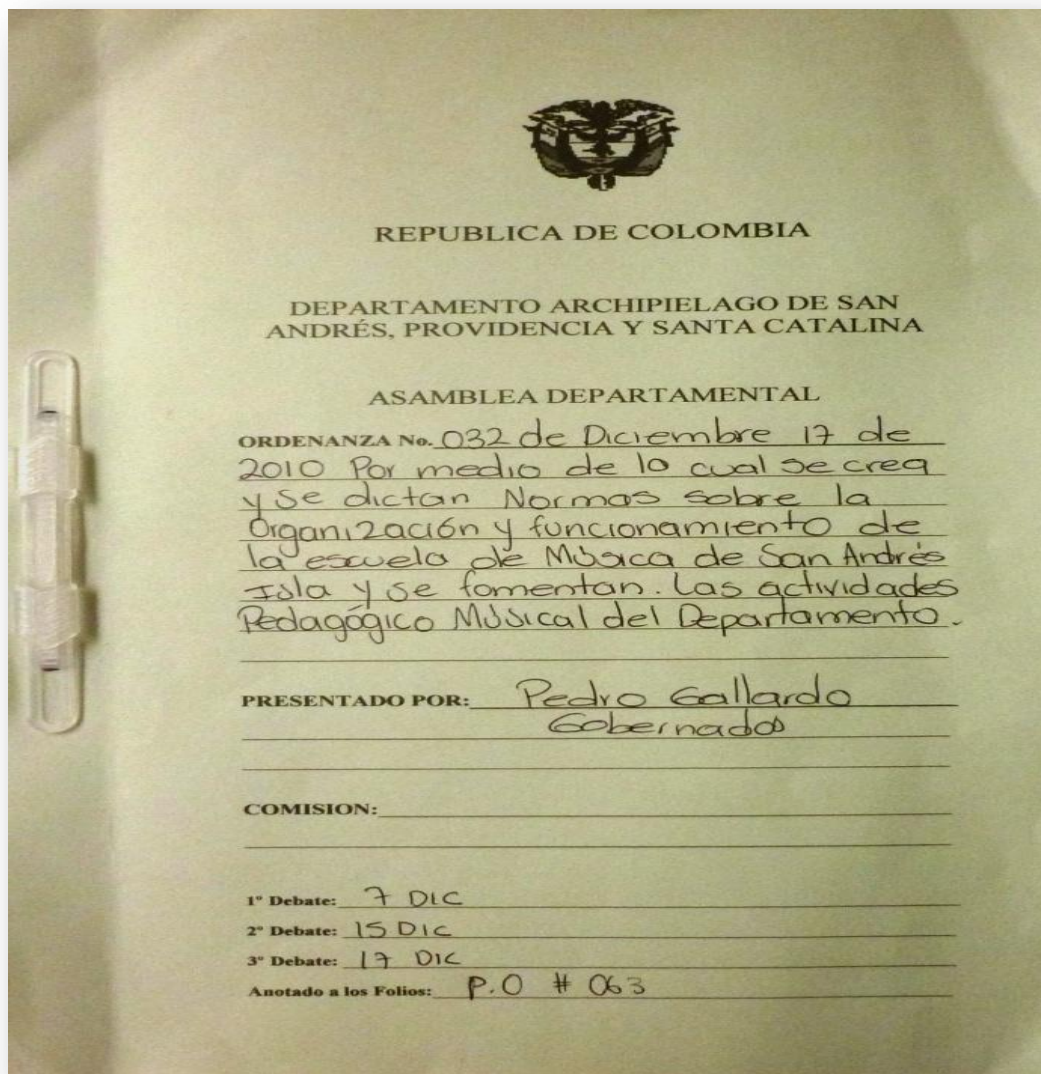 REPUBLICA DE COLOMBIA
DEPARTAMENTO ARCHIPIELAGO DE SAN
ANDRÉS, PROVIDENCIA Y SANTA CATALINA
ASAMBLEA DEPARTAMENTAL
ORDENANZA No. 032 de Diciembre 17 de
2010 Por medio de la cual se crea
y se dictan Normas sobre la
Organización y funcionamiento de
la escuela de Música de San Andrés
Isla y se fomentan. Las actividades
Pedagógico Músical del Departamento.
PRESENTADO POR: Pedro Gallardo
Gobernador
COMISION:
1º Debate: 7 DIC
2º Debate: 15 DIC
3º Debate: 17 DIC
Anotado a los Folios: P.O # 063